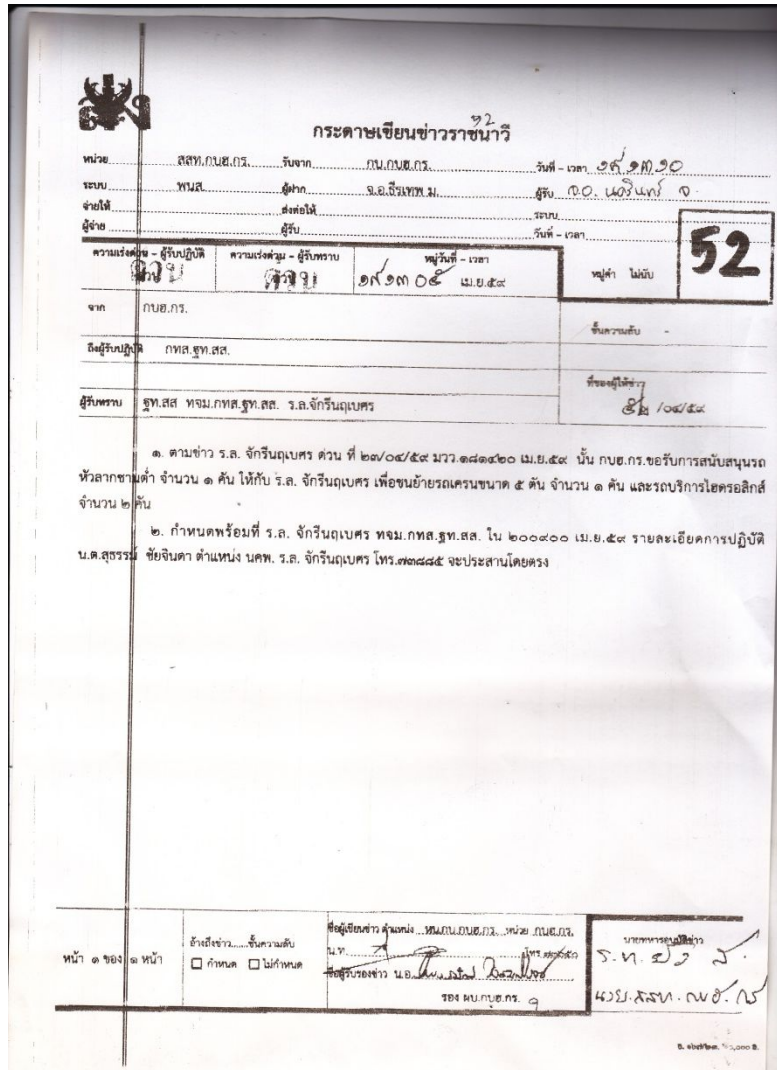 ๖๒
กระดาษเขียนข่าวราชนาวี
หน่วย สสท.กบฮ.กร. รับจาก กบ.กบฮ.กร. วันที่ - เวลา ๑๙๑๓๑๐
ระบบ พนส. ผู้ฝาก จ.อ.ธีรเทพ ม. ผู้รับ จ.อ.
จ่ายให้ ส่งต่อให้ ระบบ
ผู้จ่าย ผู้รับ วันที่ - เวลา
52
ความเร่งด่วน - ผู้รับปฏิบัติ ความเร่งด่วน - ผู้รับทราบ หมู่วันที่ - เวลา
ด่วน ด่วน ๑๙๑๓๐๕ เม.ย.๕๙ หมู่คำ ไม่นับ
จาก กบฮ.กร.
ชั้นความลับ -
ถึงผู้รับปฏิบัติ กทส.ฐท.สส.
ที่ของผู้ให้ข่าว
ผู้รับทราบ ฐท.สส ทจม.กทส.ฐท.สส. ร.ล.จักรีนฤเบศร /๐๔/๕๙
๑. ตามข่าว ร.ล. จักรีนฤเบศร ด่วน ที่ ๒๗/๐๔/๕๙ มวว.๑๘๑๔๒๐ เม.ย.๕๙ นั้น กบฮ.กร.ขอรับการสนับสนุนรถ
หัวลากชานต่ำ จำนวน ๑ คัน ให้กับ ร.ล. จักรีนฤเบศร เพื่อขนย้ายรถเครนขนาด ๕ ตัน จำนวน ๑ คัน และรถบริการไฮดรอลิกส์
จำนวน ๒ คัน
๒. กำหนดพร้อมที่ ร.ล. จักรีนฤเบศร ทจม.กทส.ฐท.สส. ใน ๒๐๐๙๐๐ เม.ย.๕๙ รายละเอียดการปฏิบัติ
น.ต.สุธรรม์ ชัยจินดา ตำแหน่ง นคพ. ร.ล. จักรีนฤเบศร โทร.๗๓๘๘๕ จะประสานโดยตรง
หน้า ๑ ของ ๑ หน้า
อ้างถึงข่าว......ชั้นความลับ
กำหนด ไม่กำหนด
ชื่อผู้เขียนข่าว ตำแหน่ง หน.กบ.กบฮ.กร. หน่วย กบฮ.กร.
น.ท. โทร
ชื่อผู้รับรองข่าว น.อ.
รอง ผบ.กบฮ.กร.
นายทหารอนุมัติข่าว
ร.ท.